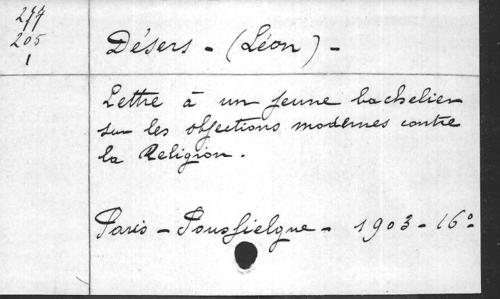 277
205
1
Désers - (Léon) -
Lettre à un jeune bachelier
sur les objections modernes contre
la Religion.
Paris - Poussielgue - 1903 - 16°